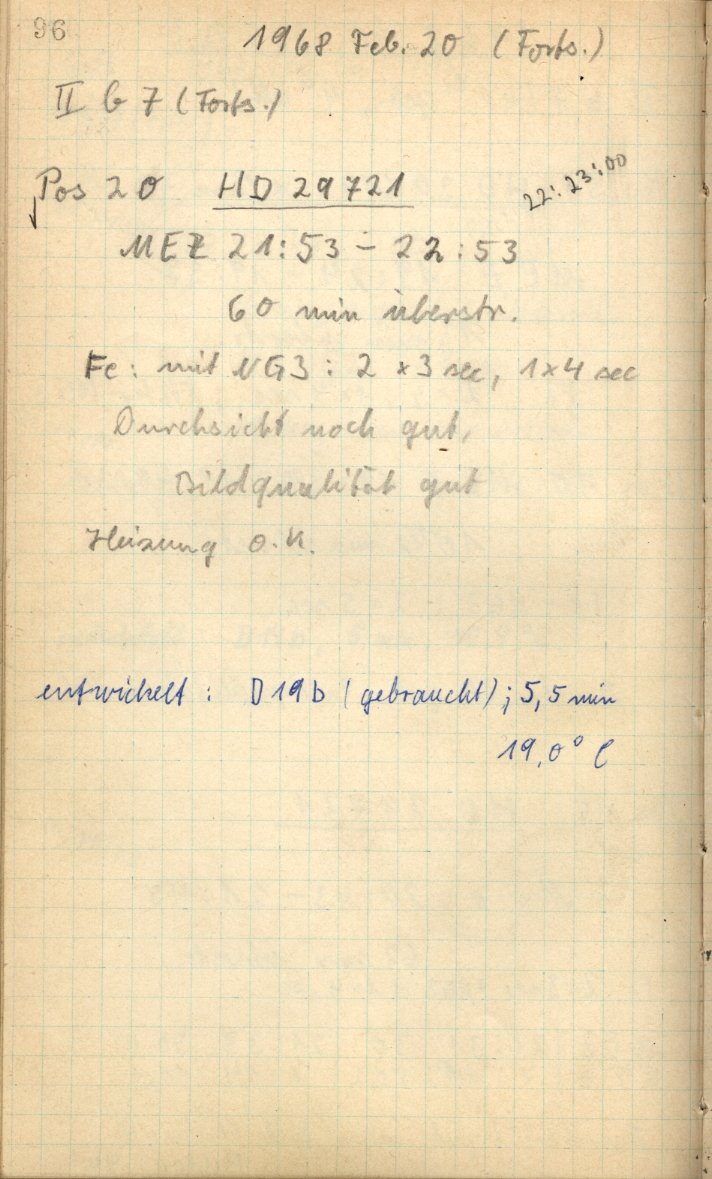 96
1968 Feb. 20 (Forts.)
II b 7 (Forts.)
Pos 20 HD 29721
22:23:00
MEZ 21:53 – 22:53
60 min überstr.
Fe: mit NG3: 2 x 3 sec, 1 x 4 sec
Durchsicht noch gut,
Bildqualität gut
Heizung o.K.
entwickelt : D19b (gebraucht); 5,5 min
19,0° C